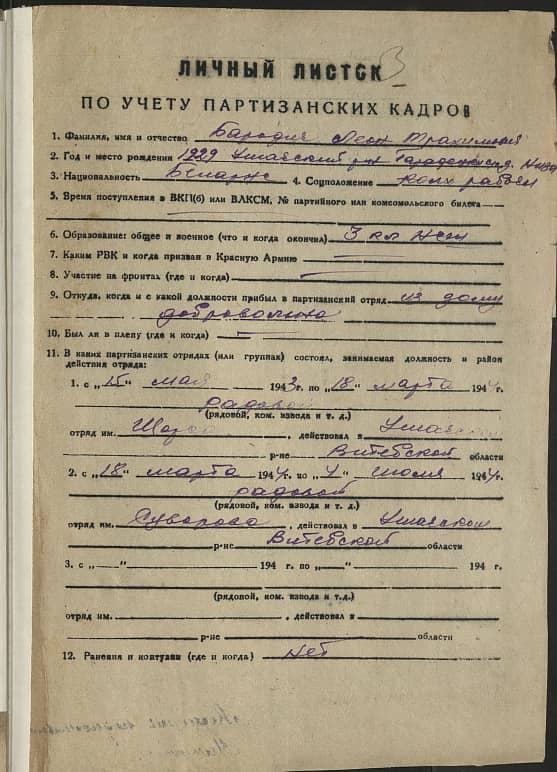 ЛИЧНЫЙ ЛИСТОК
ПО УЧЕТУ ПАРТИЗАНСКИХ КАДРОВ
1. Фамилия, имя и отчество Бародич Леон
2. Год и место рождения 1929 Ушачский р-н
3. Национальность 4. Соцположение
5. Время поступления в ВКП(б) или ВЛКСМ, № партийного или комсомольского билета
6. Образование: общее и военное (что и когда окончил) 3 кл
7. Каким РВК и когда призван в Красную Армию
8. Участие на фронтах (где и когда)
9. Откуда, когда и с какой должности прибыл в партизанский отряд из дому
добровольно
10. Был ли в плену (где и когда)
11. В каких партизанских отрядах (или группах) состоял, занимаемая должность и район
действия отряда:
1. с „15" мая 1943г. по „18" марта 1944г.
радовой
(рядовой, ком. взвода и т. д.)
отряд им. , действовал в Ушачском
р-не Витебской области
2. с „18" марта 1944г. по „4" июля 1944г.
радовой
(рядовой, ком. взвода и т. д.)
отряд им. Суворова , действовал в Ушачском
р-не Витебской области
3. с „ " 194 г. по „ " 194 г.
(рядовой, ком. взвода и т.д.)
отряд им. , действовал в
р-не области
12. Ранения и контузии (где и когда) Нет